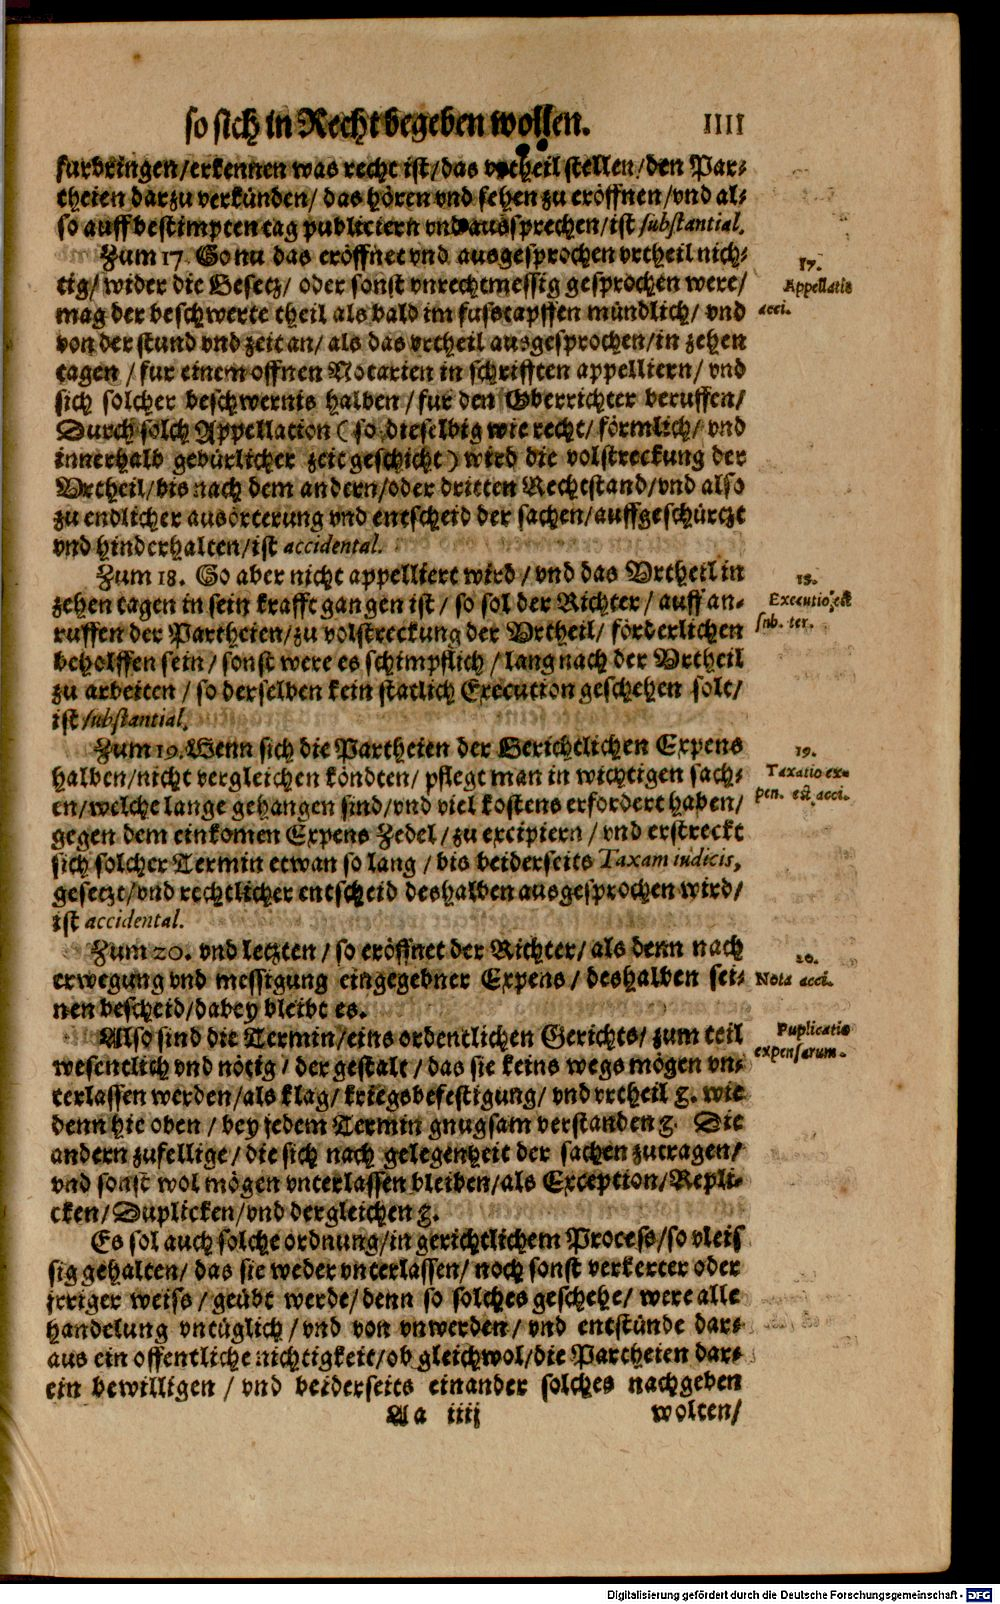 so sich in Recht begeben wollen. IIII
furbringen/erkennen was recht ist/das vrtheil stellen/den Par⸗
theien darzu verkünden/ das hören vnd sehen zu eröffnen/vnd al⸗
so auff bestimpten tag publiciern vnd aussprechen/ist substantial.
Zum 17. So nu das eröffnet vnd ausgesprochen vrtheil nich⸗
tig/ wider die Gesetz/ oder sonst vnrechtmessig gesprochen were/
mag der beschwerte theil als bald im fusstapffen mündlich/ vnd
von der stund vnd zeit an/ als das vrtheil ausgesprochen/in zehen
tagen / fur einem offnen Notarien in schrifften appelliern/ vnd
sich solcher beschwernis halben / fur den Oberrichter beruffen/
Durch solch Appellation ( so dieselbig wie recht/ förmlich/ vnd
innerhalb gebürlicher zeit geschicht ) wird die volstreckung der
Vrtheil/bis nach dem andern/oder dritten Rechtstand/vnd also
zu endlicher ausörterung vnd entscheid der sachen/auffgeschürtzt
vnd hinderhalten/ist accidental.
17.
Appellatio
acci.
Zum 18. So aber nicht appelliert wird / vnd das Vrtheil in
zehen tagen in sein krafft gangen ist / so sol der Richter / auff an⸗
ruffen der Partheien/zu volstreckung der Vrtheil/ förderlichen
beholffen sein/ sonst were es schimpflich / lang nach der Vrtheil
zu arbeiten / so derselben kein statlich Execution geschehen solt/
ist substantial.
18.
Executio est
sub. ter.
Zum 19. Wenn sich die Partheien der Gerichtlichen Expens
halben/nicht vergleichen köndten/ pflegt man in wichtigen sach⸗
en/welche lange gehangen sind/vnd viel kostens erfordert haben/
gegen dem einkomen Expens Zedel/ zu excipiern / vnd erstreckt
sich solcher Termin etwan so lang / bis beiderseits Taxam iudicis,
gesetzt/vnd rechtlicher entscheid deshalben ausgesprochen wird/
ist accidental.
19.
Taxatio ex⸗
pen. est acci.
Zum 20. vnd letzten / so eröffnet der Richter/ als denn nach
erwegung vnd messigung eingegebner Expens / deshalben sei⸗
nen bescheid/dabey bleibt es.
20.
Nota acci.
Also sind die Termin/eins ordentlichen Gerichts/ zum teil
wesentlich vnd nötig / der gestalt / das sie keins wegs mögen vn⸗
terlassen werden/als klag/ kriegsbefestigung/ vnd vrtheil ꝛc. wie
denn hie oben / bey jedem Termin gnugsam verstanden ꝛc. Die
andern zufellige / die sich nach gelegenheit der sachen zutragen/
vnd sonst wol mögen vnterlassen bleiben/als Exception/Repli⸗
cken/ Duplicken/vnd dergleichen ꝛc.
Puplicatio
expensarum.
Es sol auch solche ordnung/in gerichtlichem Process/so vleis
sig gehalten/ das sie weder vnterlassen/ noch sonst verkerter oder
jrriger weiss / geübt werde/ denn so solches geschehe/ were alle
handelung vntüglich / vnd von vnwerden/ vnd entstünde dar⸗
aus ein offentliche nichtigkeit/ob gleichwol/die Partheien dar⸗
ein bewilligen / vnd beiderseits einander solches nachgeben
Aa iiij wolten/
Digitalisierung gefördert durch die Deutsche Forschungsgemeinschaft - DFG